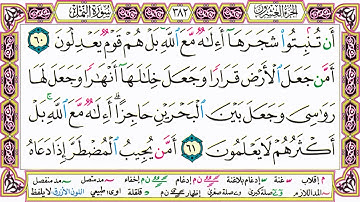 الجزء العشرون ٣٨٢ سورة النمل
أَن تُنۢبِتُوا۟ شَجَرَهَآ أَءِلَـٰهٌ مَّعَ ٱللَّهِ بَلْ هُمْ قَوْمٌ يَعْدِلُونَ ٦٠
أَمَّن جَعَلَ ٱلْأَرْضَ قَرَارًا وَجَعَلَ خِلَـٰلَهَآ أَنْهَـٰرًا وَجَعَلَ لَهَا
رَوَٰسِىَ وَجَعَلَ بَيْنَ ٱلْبَحْرَيْنِ حَاجِزًا أَءِلَـٰهٌ مَّعَ ٱللَّهِ بَلْ
أَكْثَرُهُمْ لَا يَعْلَمُونَ ٦١ أَمَّن يُجِيبُ ٱلْمُضْطَرَّ إِذَا دَعَاهُ